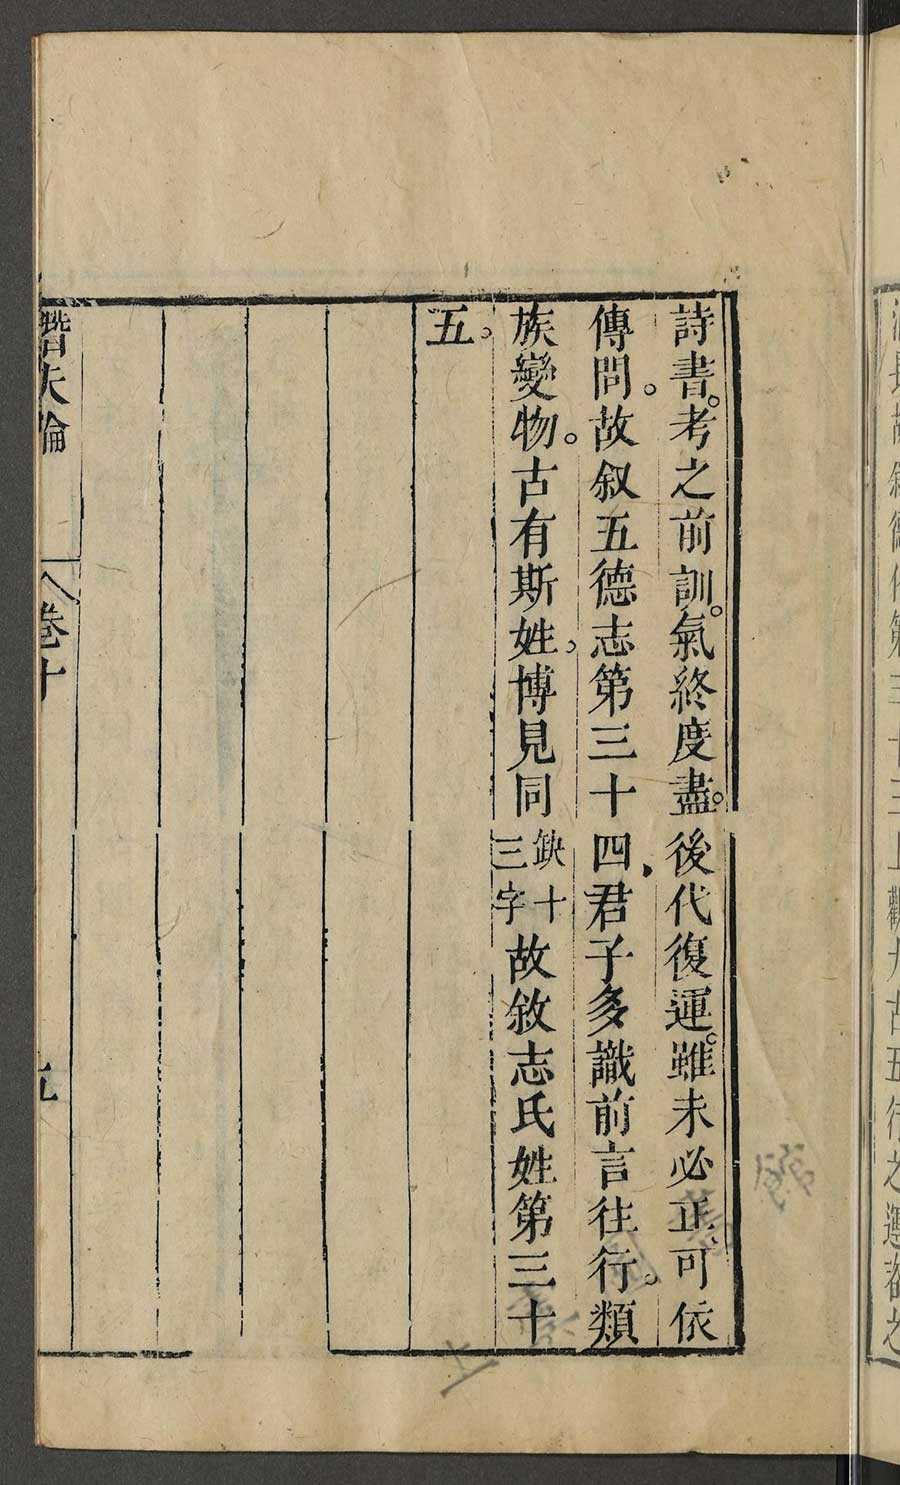 詩書。考之前訓。氣終度盡。後代復運。雖未必正。可依
傳問。故叙五德志第三十四君子多識前言往行。類
族變物。古有斯姓。博見同缺十三字故敘志氏姓第三十
五。
潛夫論
卷十
九